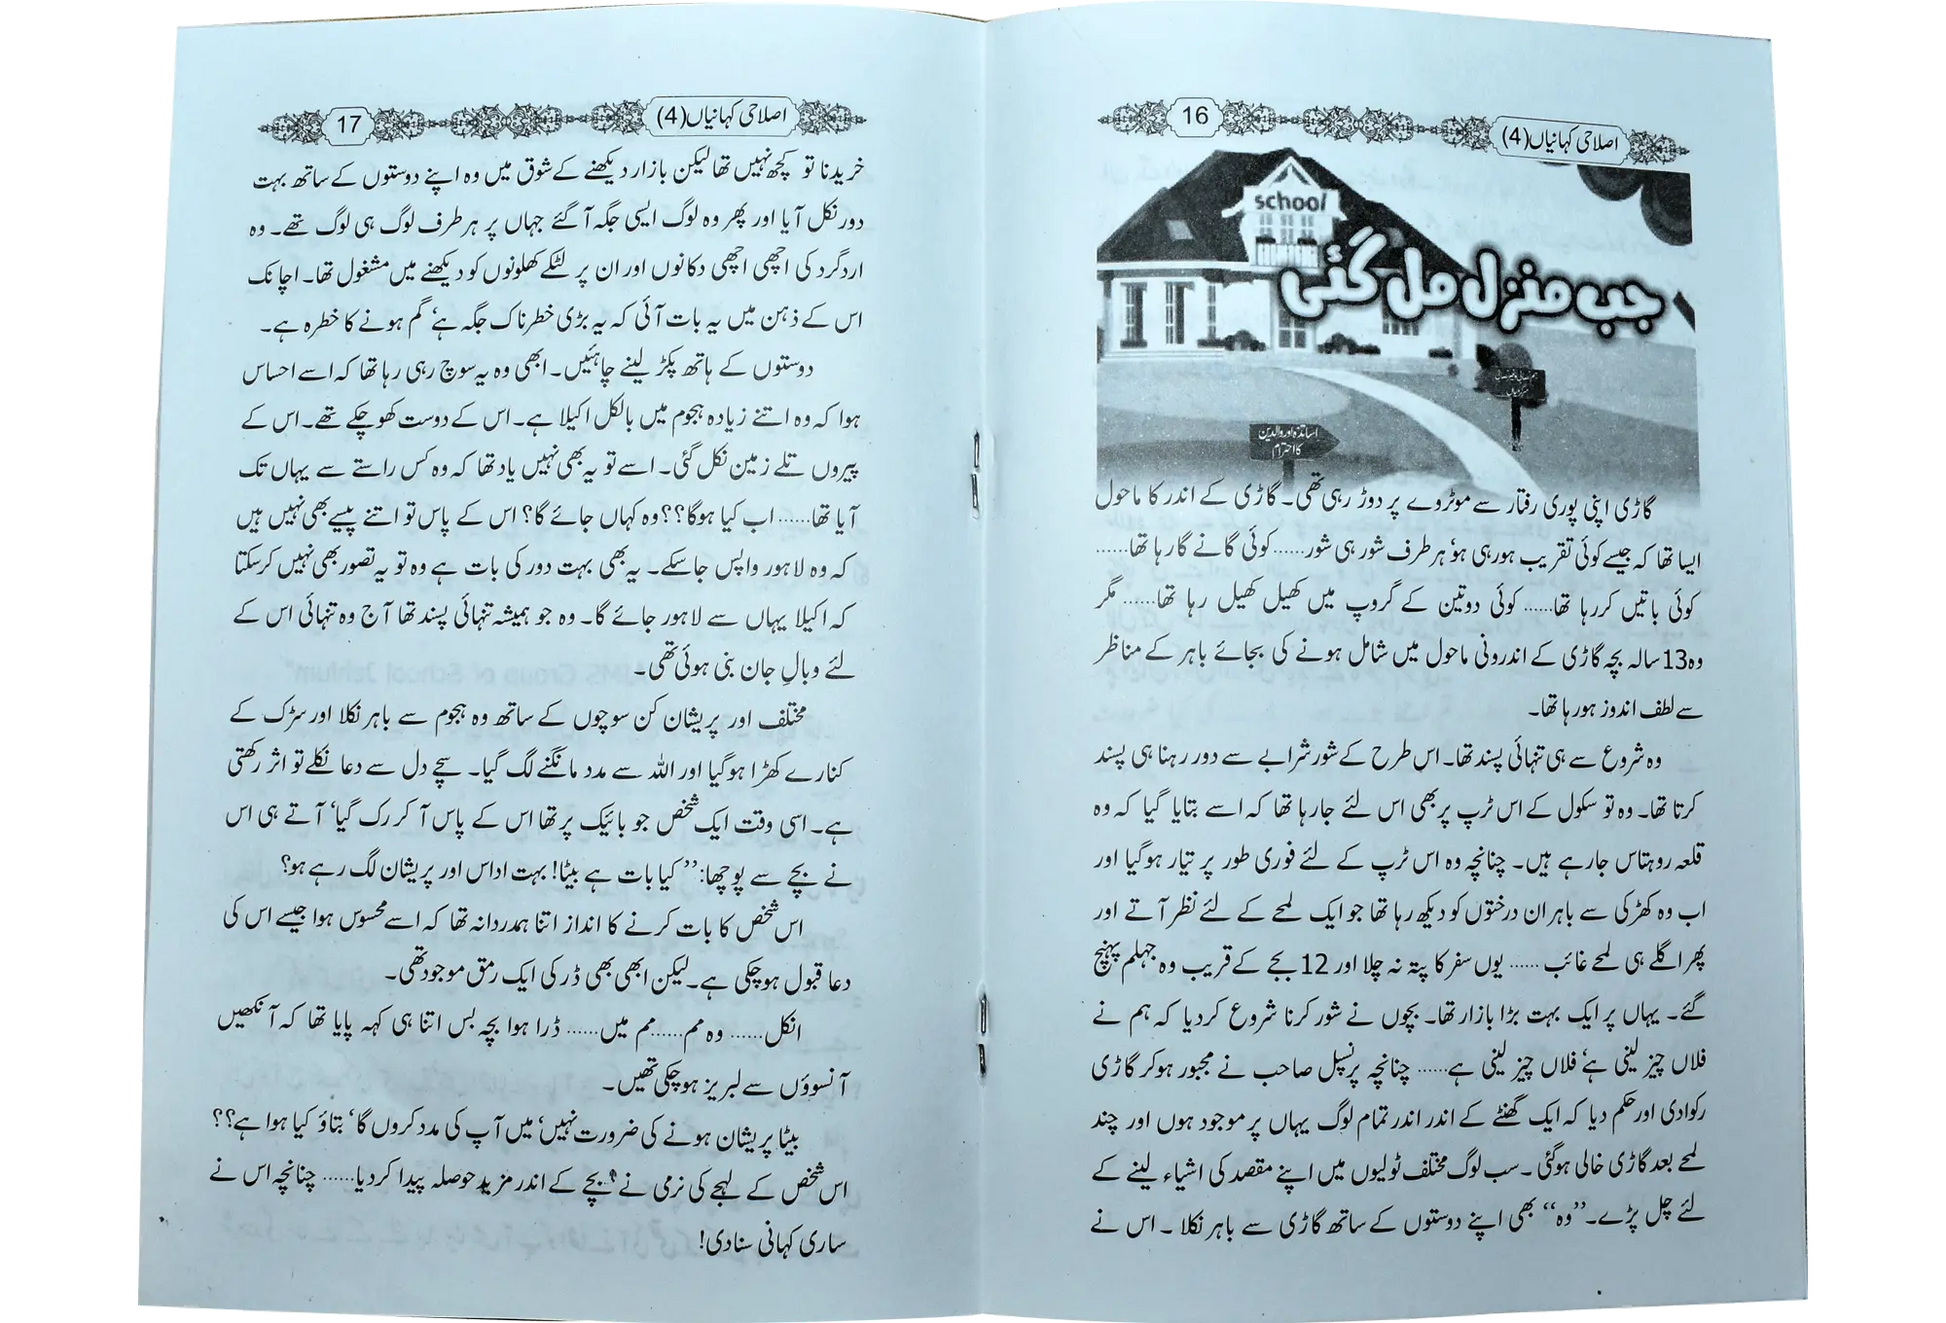 16
اصلاحی کہانیاں(4)
school
جب منزل مل گئی
اساتذہ اور والدین
کا احترام
گاڑی اپنی پوری رفتار سے موٹروے پر دوڑ رہی تھی۔ گاڑی کے اندر کا ماحول
ایسا تھا کہ جیسے کوئی تقریب ہورہی ہو‘ ہر طرف شور ہی شور...... کوئی گانے گا رہا تھا......
کوئی باتیں کررہا تھا...... کوئی دوتین کے گروپ میں کھیل کھیل رہا تھا...... مگر
وہ 13 سالہ بچہ گاڑی کے اندرونی ماحول میں شامل ہونے کی بجائے باہر کے مناظر
سے لطف اندوز ہورہا تھا۔
وہ شروع سے ہی تنہائی پسند تھا۔ اس طرح کے شور شرابے سے دور رہنا ہی پسند
کرتا تھا۔ وہ تو سکول کے اس ٹرپ پر بھی اس لئے جارہا تھا کہ اسے بتایا گیا کہ وہ
قلعہ روہتاس جارہے ہیں۔ چنانچہ وہ اس ٹرپ کے لئے فوری طور پر تیار ہوگیا اور
اب وہ کھڑکی سے باہر ان درختوں کو دیکھ رہا تھا جو ایک لمحے کے لئے نظر آتے اور
پھر اگلے ہی لمحے غائب ...... یوں سفر کا پتہ نہ چلا اور 12 بجے کے قریب وہ جہلم پہنچ
گئے۔ یہاں پر ایک بہت بڑا بازار تھا۔ بچوں نے شور کرنا شروع کردیا کہ ہم نے
فلاں چیز لینی ہے‘ فلاں چیز لینی ہے...... چنانچہ پرنسپل صاحب نے مجبور ہوکر گاڑی
رکوادی اور حکم دیا کہ ایک گھنٹے کے اندر اندر تمام لوگ یہاں پر موجود ہوں اور چند
لمحے بعد گاڑی خالی ہوگئی۔ سب لوگ مختلف ٹولیوں میں اپنے مقصد کی اشیاء لینے کے
لئے چل پڑے۔ ’’وہ‘‘ بھی اپنے دوستوں کے ساتھ گاڑی سے باہر نکلا ۔ اس نے
17
اصلاحی کہانیاں(4)
خریدنا تو کچھ نہیں تھا لیکن بازار دیکھنے کے شوق میں وہ اپنے دوستوں کے ساتھ بہت
دور نکل آیا اور پھر وہ لوگ ایسی جگہ آ گئے جہاں پر ہر طرف لوگ ہی لوگ تھے۔ وہ
اردگرد کی اچھی اچھی دکانوں اور ان پر لٹکے کھلونوں کو دیکھنے میں مشغول تھا۔ اچانک
اس کے ذہن میں یہ بات آئی کہ یہ بڑی خطرناک جگہ ہے‘ گم ہونے کا خطرہ ہے۔
دوستوں کے ہاتھ پکڑ لینے چاہئیں۔ ابھی وہ یہ سوچ رہی رہا تھا کہ اسے احساس
ہوا کہ وہ اتنے زیادہ ہجوم میں بالکل اکیلا ہے۔ اس کے دوست کھو چکے تھے۔ اس کے
پیروں تلے زمین نکل گئی۔ اسے تو یہ بھی نہیں یاد تھا کہ وہ کس راستے سے یہاں تک
آیا تھا...... اب کیا ہوگا؟؟ وہ کہاں جائے گا؟ اس کے پاس تو اتنے پیسے بھی نہیں ہیں
کہ وہ لاہور واپس جاسکے۔ یہ بھی بہت دور کی بات ہے وہ تو یہ تصور بھی نہیں کرسکتا
کہ اکیلا یہاں سے لاہور جائے گا۔ وہ جو ہمیشہ تنہائی پسند تھا آج وہ تنہائی اس کے
لئے وبالِ جان بنی ہوئی تھی۔
مختلف اور پریشان کن سوچوں کے ساتھ وہ ہجوم سے باہر نکلا اور سڑک کے
کنارے کھڑا ہوگیا اور اللہ سے مدد مانگنے لگ گیا۔ سچے دل سے دعا نکلے تو اثر رکھتی
ہے۔ اسی وقت ایک شخص جو بائیک پر تھا اس کے پاس آ کر رک گیا‘ آتے ہی اس
نے بچے سے پوچھا: ’’کیا بات ہے بیٹا! بہت اداس اور پریشان لگ رہے ہو؟
اس شخص کا بات کرنے کا انداز اتنا ہمدردانہ تھا کہ اسے محسوس ہوا جیسے اس کی
دعا قبول ہوچکی ہے۔ لیکن ابھی بھی ڈر کی ایک رمق موجود تھی۔
انکل...... وہ مم...... مم میں...... ڈرا ہوا بچہ بس اتنا ہی کہہ پایا تھا کہ آنکھیں
آنسوؤں سے لبریز ہوچکی تھیں۔
بیٹا پریشان ہونے کی ضرورت نہیں‘ میں آپ کی مدد کروں گا‘ بتاؤ کیا ہوا ہے؟؟
اس شخص کے لہجے کی نرمی نے بچے کے اندر مزید حوصلہ پیدا کردیا...... چنانچہ اس نے
ساری کہانی سنادی!